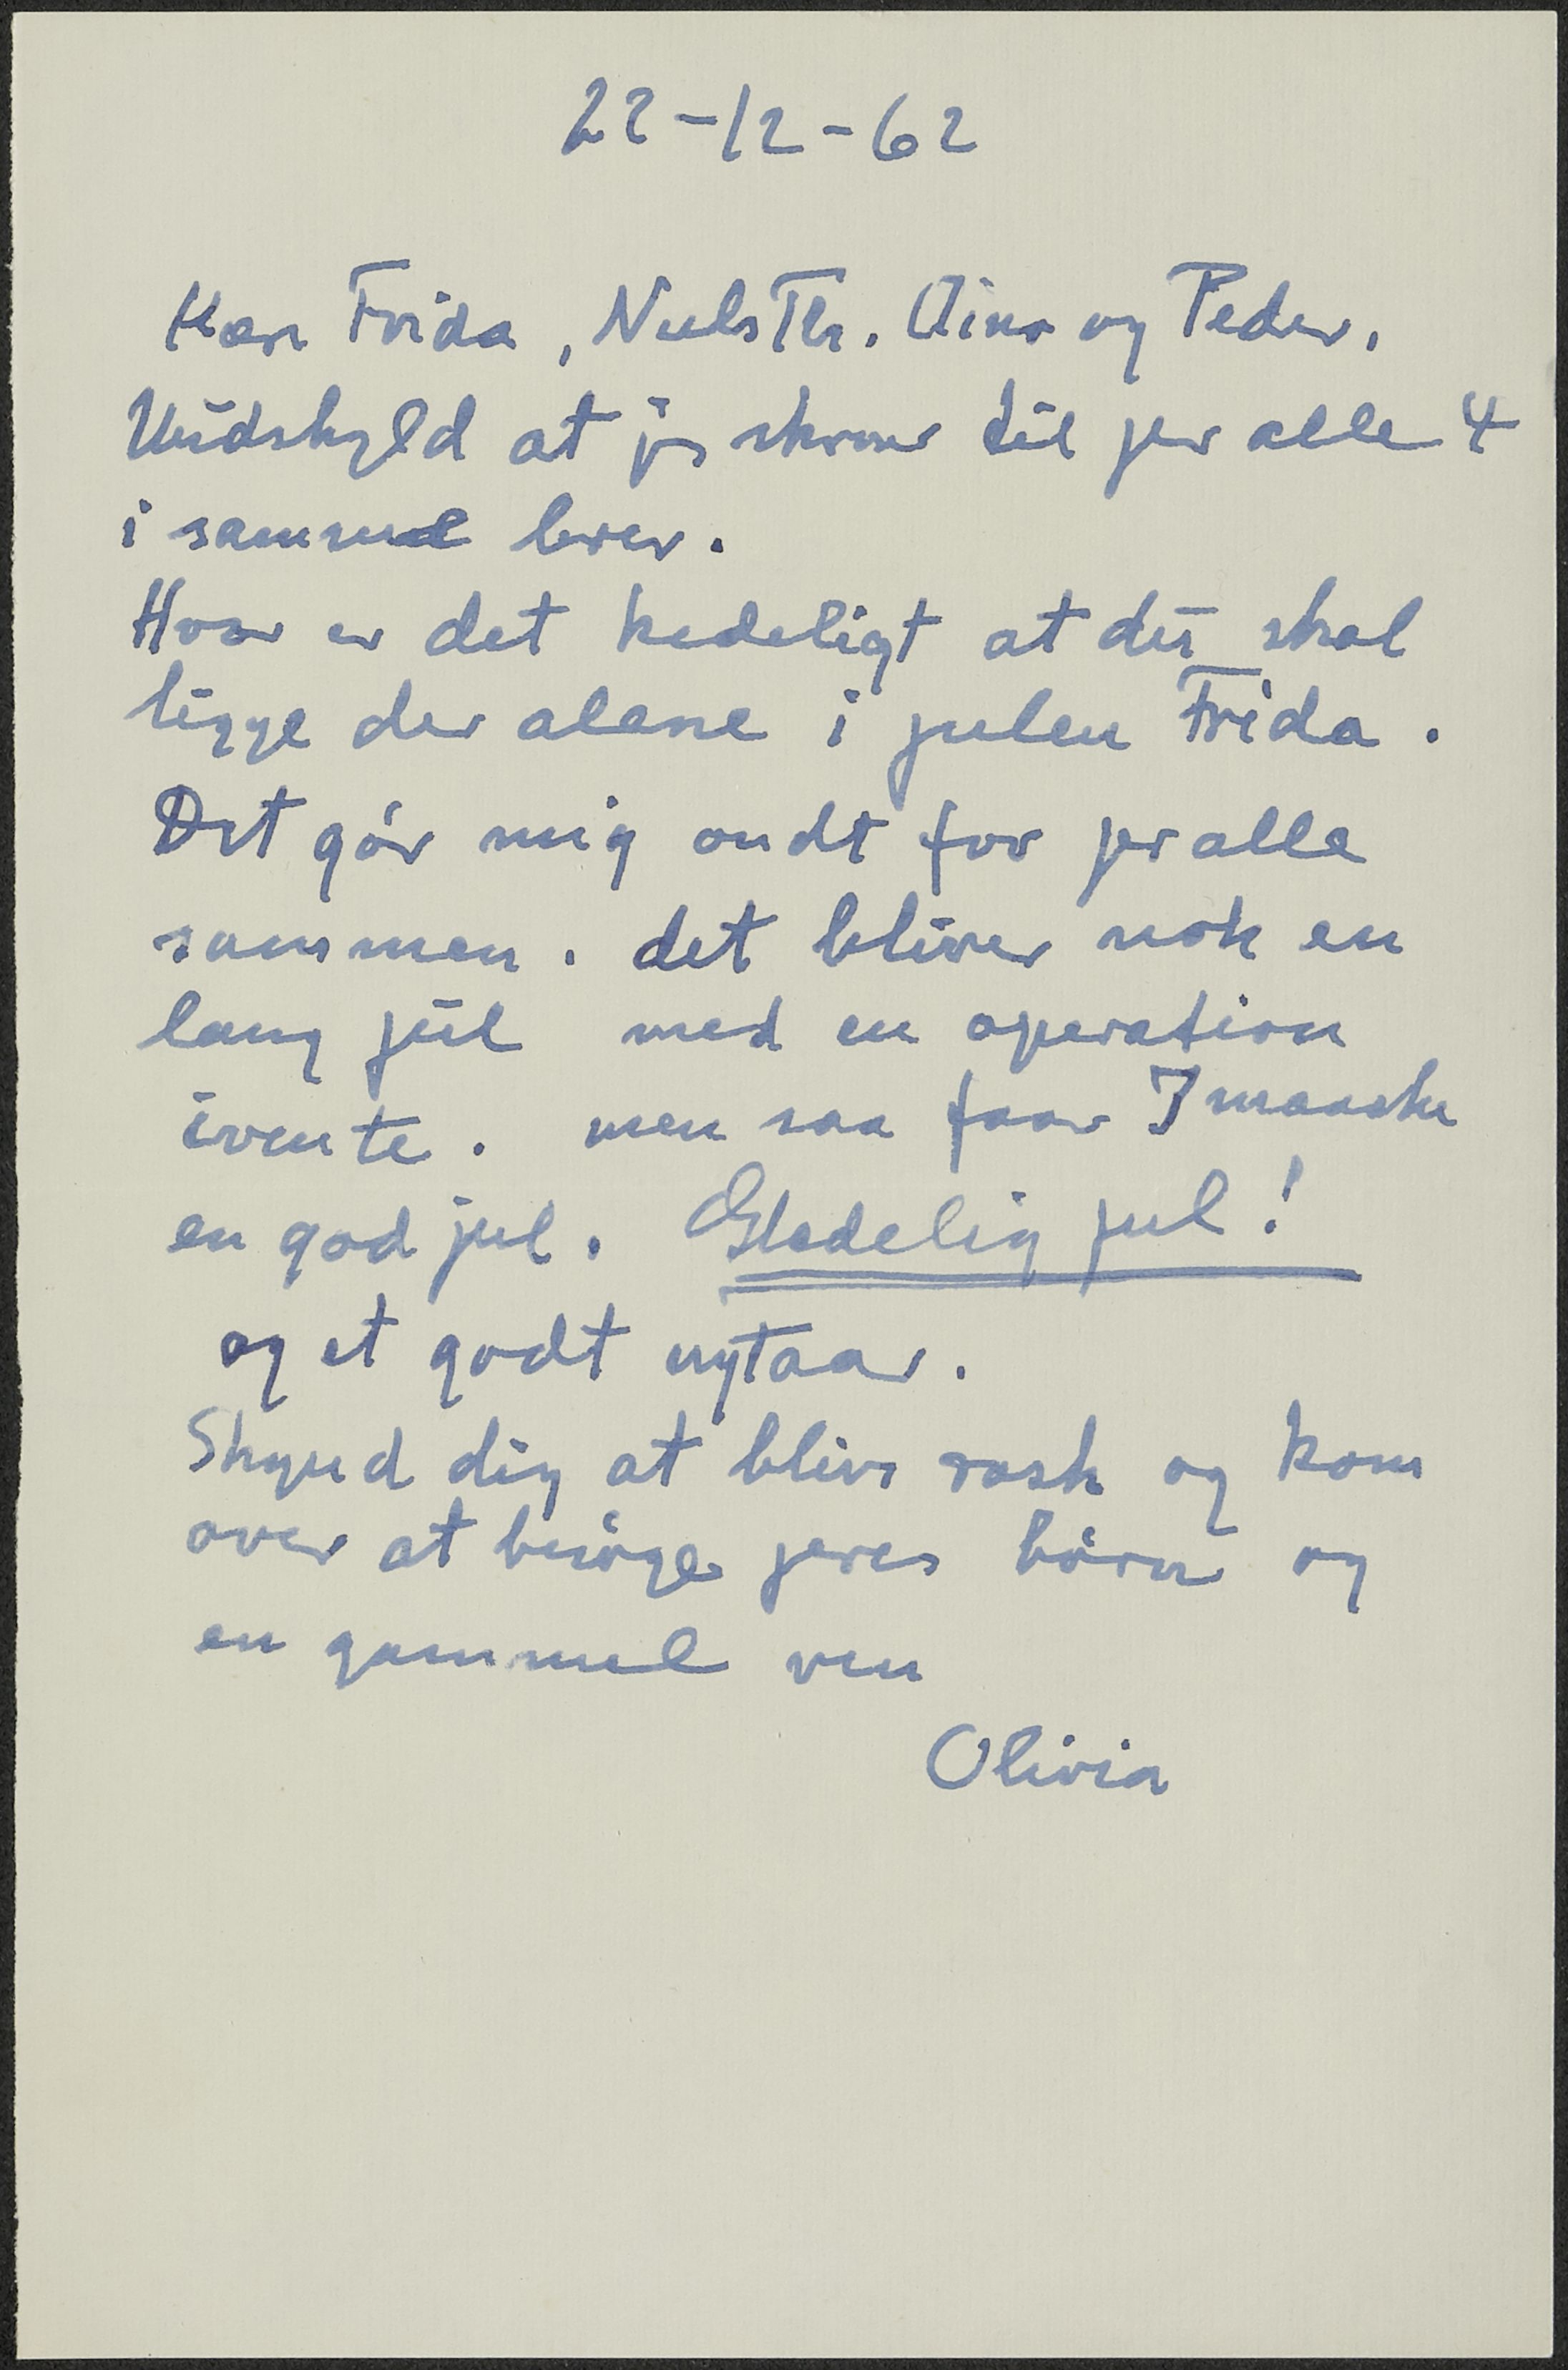 22-12-62
Kære Frida, Niels Th. Aina og Peder.
Undskyld at jeg skriver til jer alle 4
i samme brev.
Hvor er det kedeligt at du skal
ligge der alene i julen Frida.
Det gör mig ondt for jer alle
sammen. det bliver nok en
lang jul med en operation
ivente. men saa faar I maaske
en god jul. Gledelig jul!
og et godt nytaar.
Skynd dig at blive rask og kom
over at besöge jeres börn og
en gammel ven
Olivia